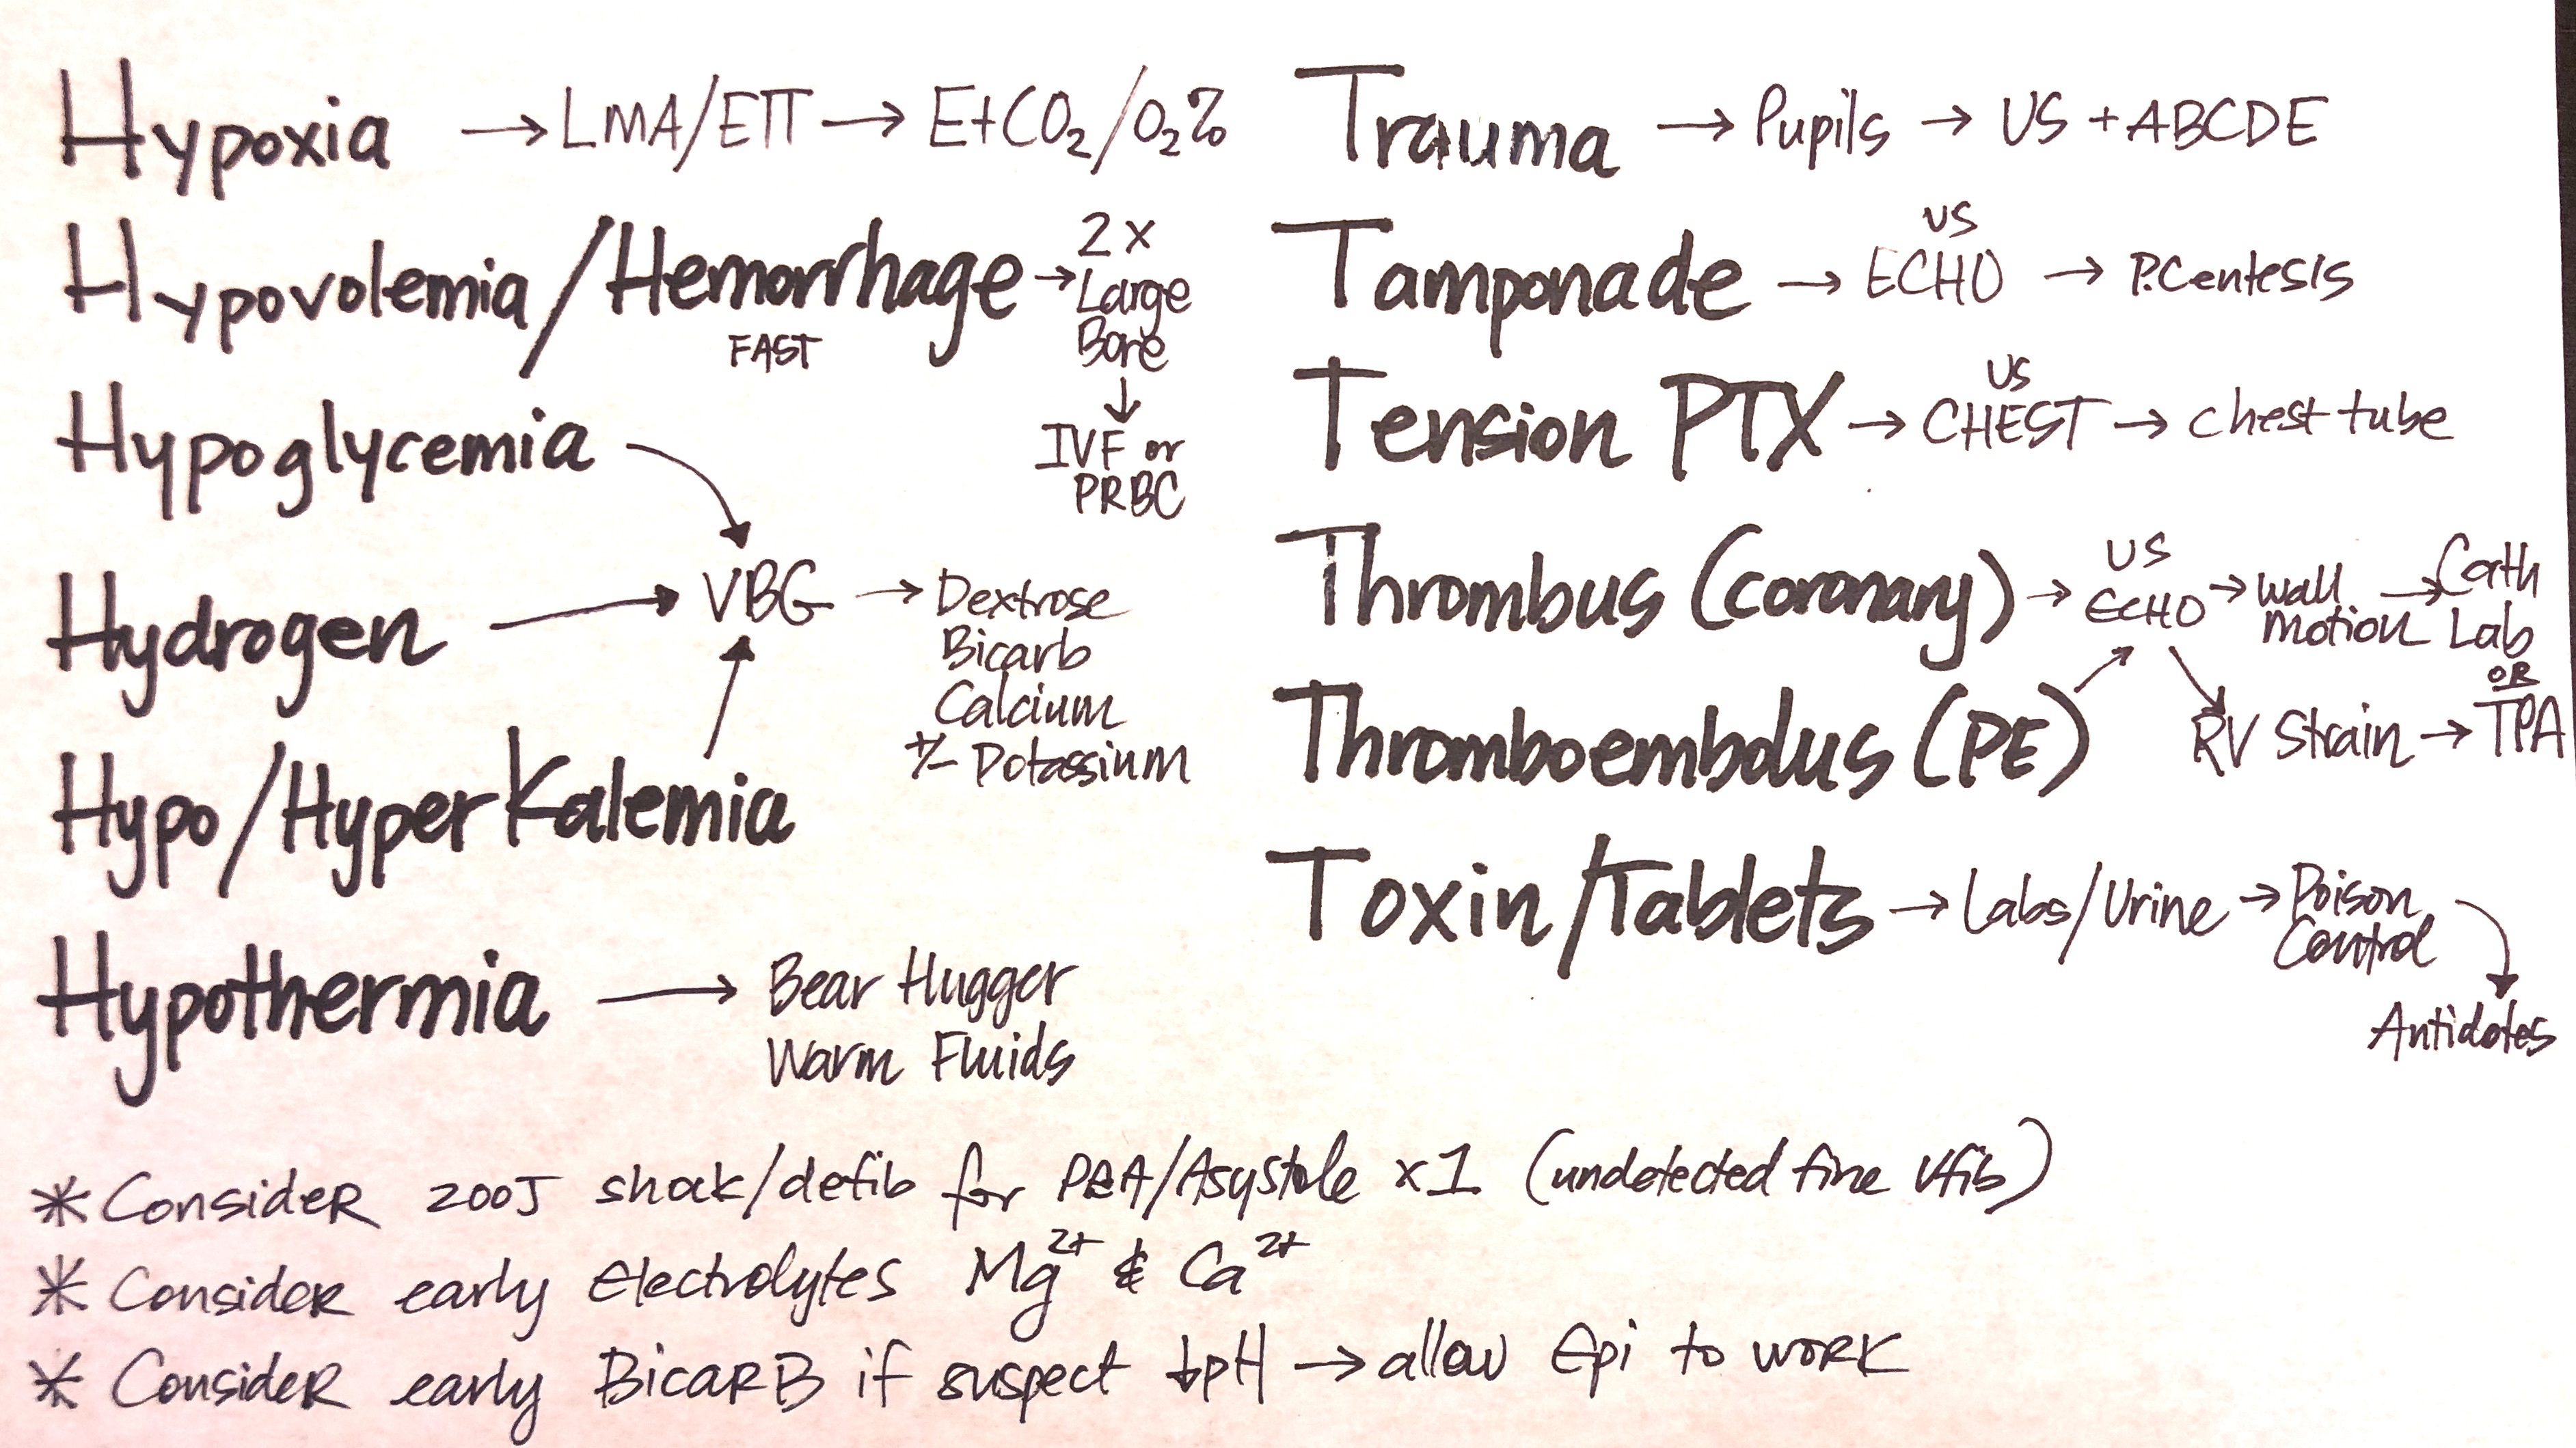 Hypoxia → LMA/ETT → EtCO₂/O₂%
Hypovolemia/Hemorrhage → 2x
Large
Bore
FAST
↓
IVF or
PRBC
Hypoglycemia
Hydrogen → VBG → Dextrose
Bicarb
Calcium
+/- Potassium
Hypo/HyperKalemia
Hypothermia → Bear Hugger
Warm Fluids
Trauma → Pupils → US + ABCDE
US
Tamponade → ECHO → P.Centesis
US
Tension PTX → CHEST → chest tube
US
Thrombus (coronary) → ECHO → wall motion → Cath Lab
OR
Thromboembolus (PE) → RV Strain → TPA
Toxin/Tablets → Labs/Urine → Poison
Control
Antidotes
* Consider 200J shock/defib for PEA/Asystole x1 (undetected fine Vfib)
* Consider early Electrolytes Mg²⁺ & Ca²⁺
* Consider early BicarB if suspect ↓pH → allow Epi to work